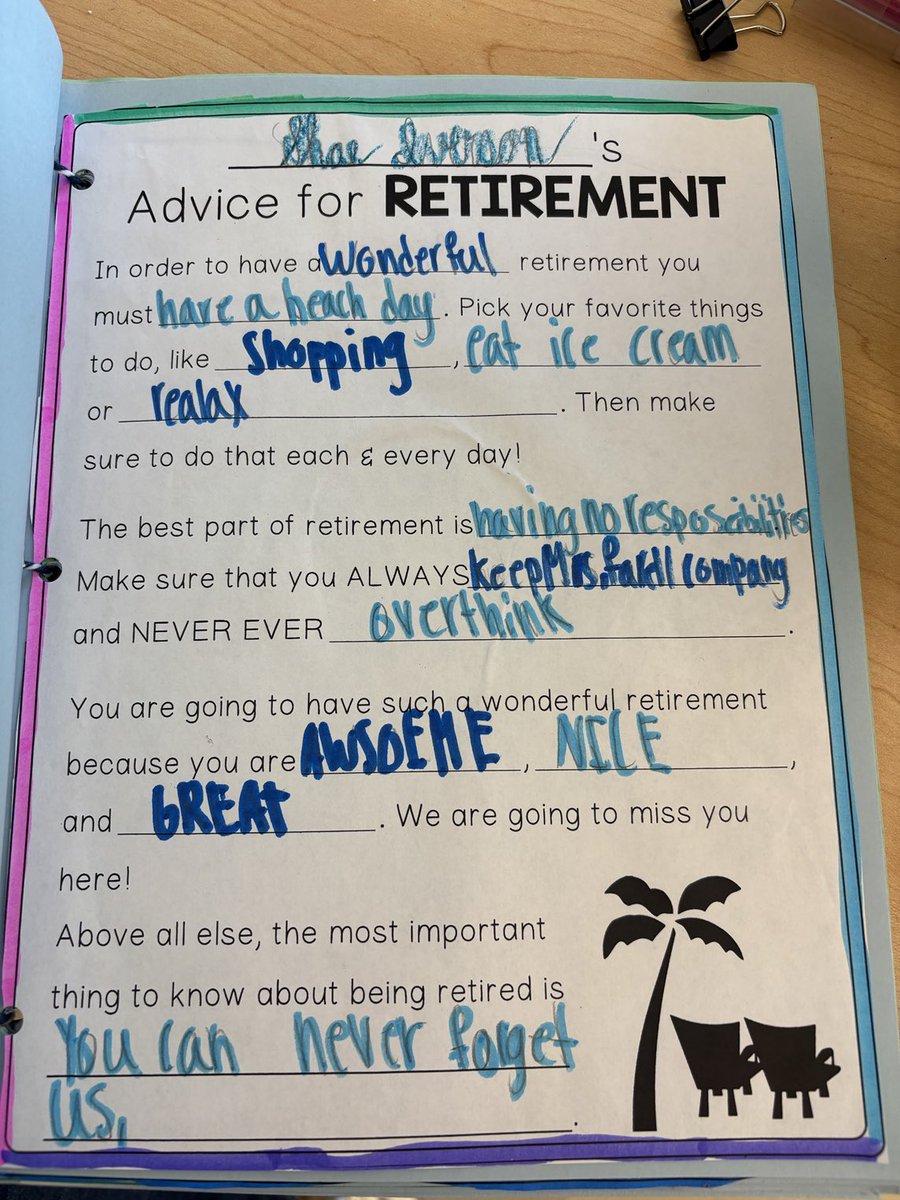 Shae Iverson's
Advice for RETIREMENT
In order to have a wonderful retirement you
must have a beach day. Pick your favorite things
to do, like Shopping, eat ice cream
or realax. Then make
sure to do that each & every day!
The best part of retirement is having no resposabilities
Make sure that you ALWAYS keep Mrs. company
and NEVER EVER overthink.
You are going to have such a wonderful retirement
because you are AWSOEME, NICE,
and GREAt. We are going to miss you
here!
Above all else, the most important
thing to know about being retired is
You can never forget
us.